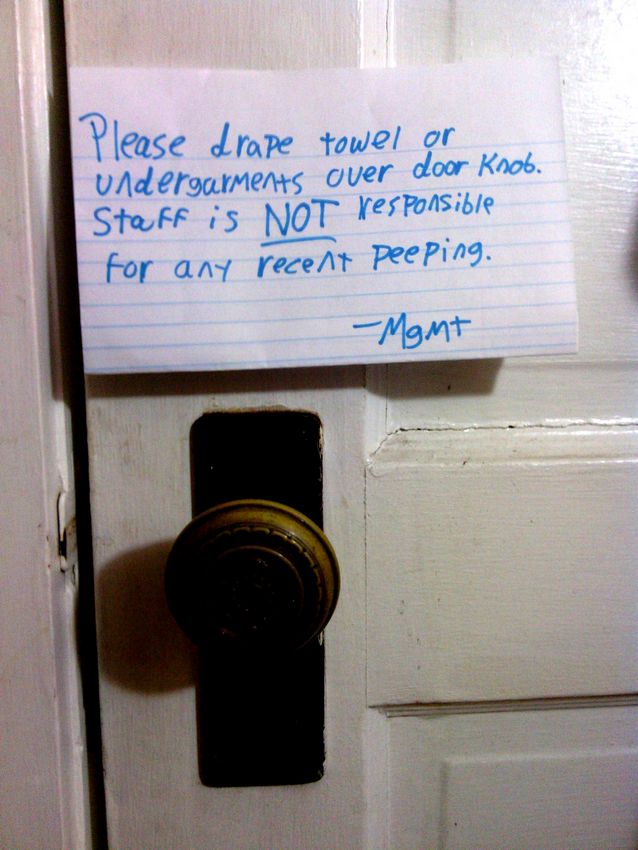 Please drape towel or
undergarments over door knob.
Staff is NOT responsible
for any recent peeping.
-Mgmt